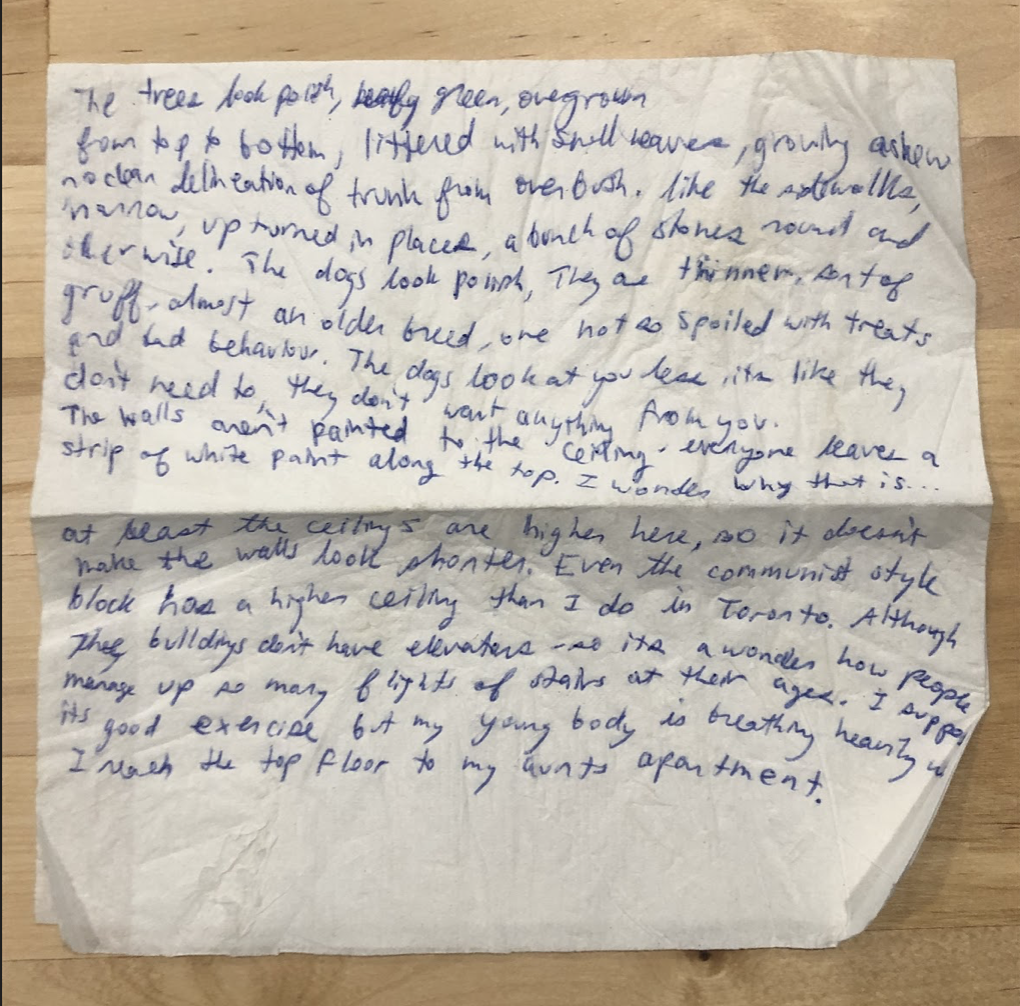 The trees look poish, leafy green, overgrown
from top to bottom, littered with small leaves, growing askew
no clean delineation of trunk from over Bush. like the sidewalks,
narrow, upturned in places, a bunch of stones round and
otherwise. The dogs look poish, They are thinner, sort of
gruff, almost an older breed, one not so spoiled with treats
and bad behaviour. The dogs look at you less, its like they
don't need to, they don't want anything from you.
The walls aren't painted to the ceiling. everyone leaves a
strip of white paint along the top. I wonder why that is...
at least the ceilings are higher here, so it doesn't
make the walls look shorter. Even the communist style
block has a higher ceiling than I do in Toronto. Although
They buildings don't have elevators - so its a wonder how people
manage up so many flights of stairs at their ages. I suppos
its good exercise but my young body is breathing heavily
I reach the top floor to my aunts apartment.